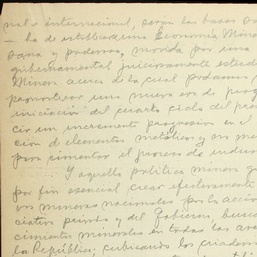 nal e internacional, seran las bases pa
ha de establecerse Economía Mine
sana y poderosa, movida por una
gubernamental juiciosamente estud
Minera acerca de la cual podamos
pronosticar una nueva era de prog
iniciación del cuarto ciclo del pro
cir un incremento progresivo en el
ción de elementos metálicos y no me
para cimentar el proceso de indus
Y aquella política minera
por fin esencial crear efectivamente
vas mineras nacionales por la acció
privados y del Gobierno, bus
cimientos minerales en todas las are
la República; cubicando los criadero